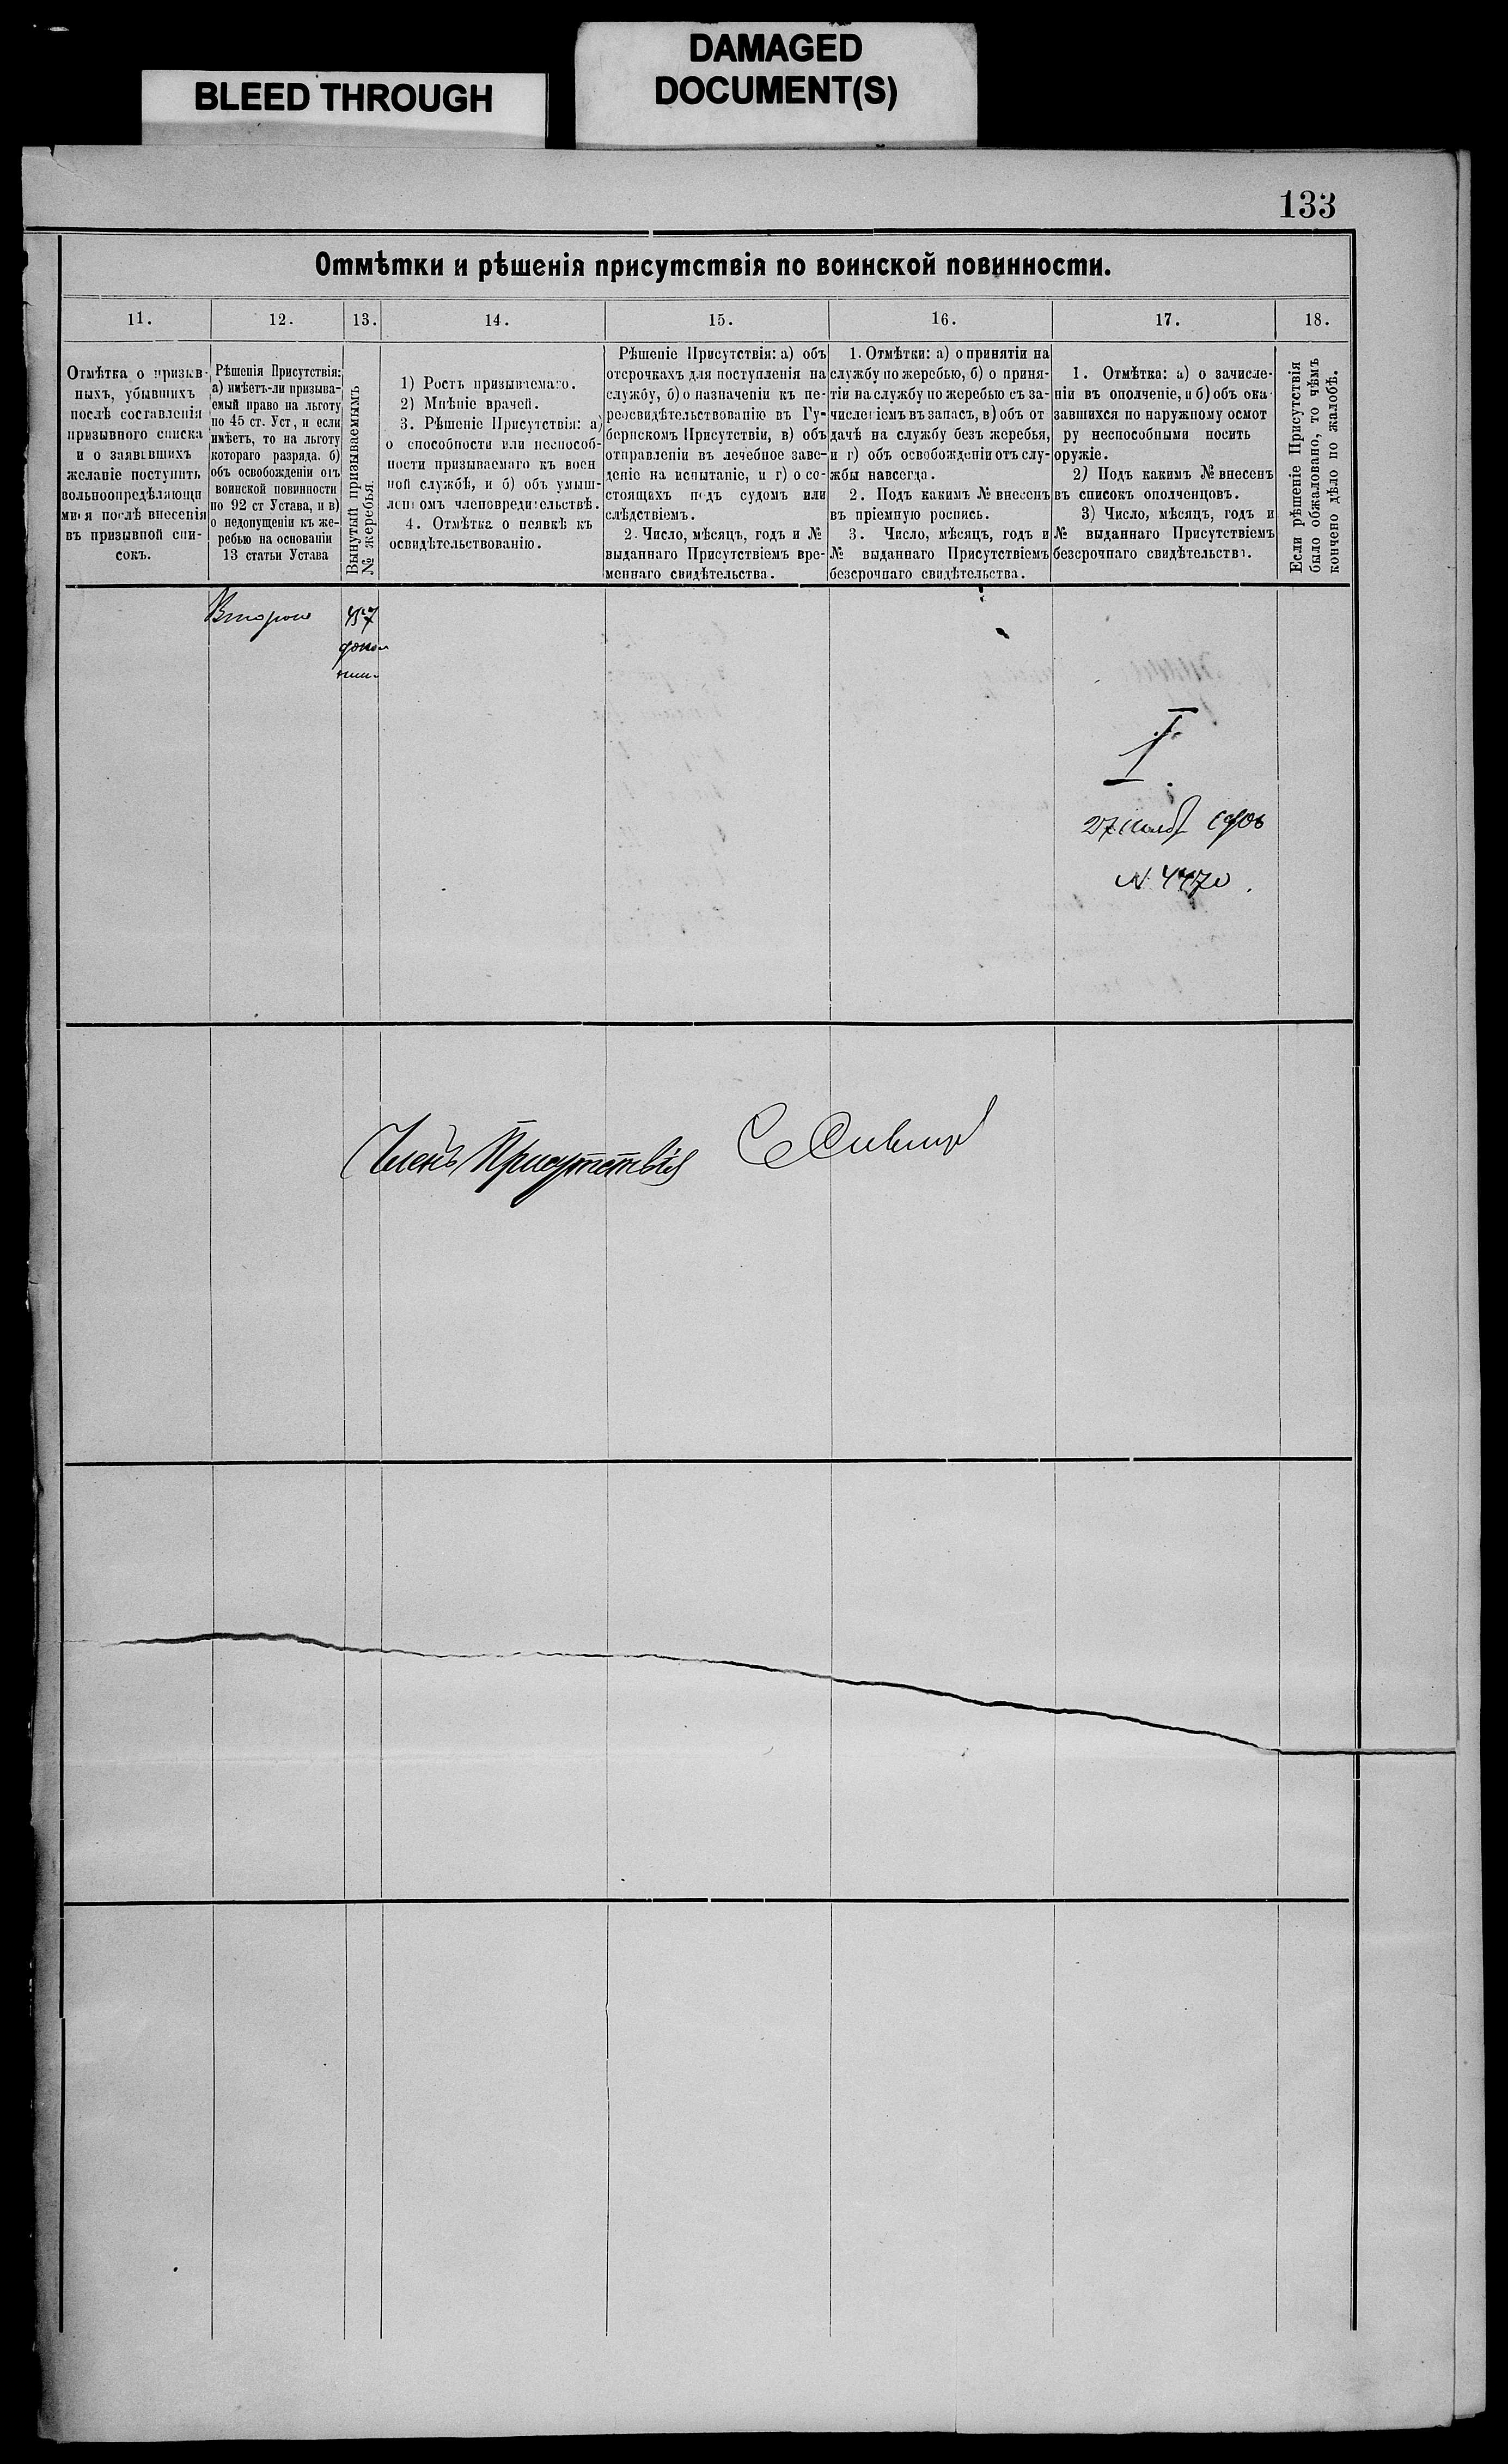 BLEED THROUGH
DAMAGED
DOCUMENT(S)
133
Отмѣтки и рѣшенія присутствія по воинской повинности.
11.
12.
13.
14.
15.
16.
17.
18.
Отмѣтка о призыв-
ныхъ, убывшихъ
послѣ составленія
призывного списка
и о заявившихъ
желаніе поступить
вольноопредѣляющи
мися послѣ внесенія
въ призывной спи-
сокъ.
Рѣшенія Присутствія:
а) имѣетъ-ли призыва-
емый право на льготу
по 45 ст. Уст, и если
имѣетъ, то на льготу
котораго разряда. б)
объ освобожденіи отъ
воинской повинности
по 92 ст Устава, и в)
о недопущеніи къ же-
ребью на основаніи
13 статьи Устава
Вынутый призываемымъ
№ жеребья.
1) Ростъ призываемаго.
2) Мнѣніе врачей.
3. Рѣшеніе Присутствія: а)
о способности или неспособ-
ности призываемаго къ воен
ной службѣ, и б) объ умыш-
ленномъ членовредительствѣ.
4. Отмѣтка о неявкѣ къ
освидѣтельствованію.
Рѣшеніе Присутствія: а) объ
отсрочкахъ для поступленія на
службу, б) о назначеніи къ пе-
реосвидѣтельствованію въ Гу-
бернскомъ Присутствіи, в) объ
отправленіи въ лечебное заве-
деніе на испытаніе, и г) о со-
стоящихъ подъ судомъ или
слѣдствіемъ.
2. Число, мѣсяцъ, годъ и №
выданнаго Присутствіемъ вре-
меннаго свидѣтельства.
1. Отмѣтки: а) о принятіи на
службу по жеребью, б) о приня-
тіи на службу по жеребью съ за-
численіемъ въ запасъ, в) объ от
дачѣ на службу безъ жеребья,
и г) объ освобожденіи отъ слу-
жбы навсегда.
2. Подъ какимъ № внесенъ
въ пріемную роспись.
3. Число, мѣсяцъ, годъ и
№ выданнаго Присутствіемъ
безсрочнаго свидѣтельства.
1. Отмѣтка: а) о зачисле-
ніи въ ополченіе, и б) объ ока-
завшихся по наружному осмот
ру неспособными носить
оружіе.
2) Подъ какимъ № внесенъ
въ списокъ ополченцовъ.
3) Число, мѣсяцъ, годъ и
№ выданнаго Присутствіемъ
безсрочнаго свидѣтельства.
Если рѣшеніе Присутствія
было обжаловано, то чѣмъ
кончено дѣло по жалобѣ.
457
I
27 Нояб
N 4470.
Членъ Присутствія